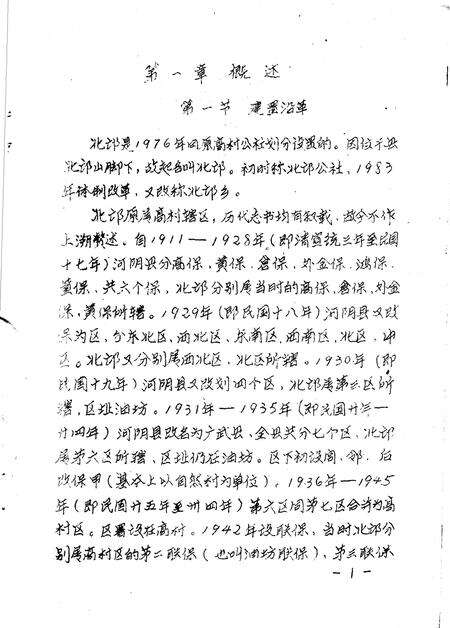 第一章 概述
第一节 建置沿革
北邙是1976年由原高村公社划分设置的。因位于县
北邙山脚下，故起名叫北邙。初时称北邙公社，1983
年体制改革，又改称北邙乡。
北邙原属高村辖区，历代志书均有记载，故不作
上溯赘述。自1911—1928年（即清宣统三年至民国
十七年）河阴县分高保，黄保、仓保、外金保、鸿保、
莫保，共六个保，北邙分别属当时的高保、仓保、外金
保，黄保所辖。1929年（即民国十八年）河阴县又改
保为区，分东北区，西北区，东南区，西南区，北区，中
区。北邙又分别属西北区，北区所辖。1930年（即
民国十九年）河阴县又改划四个区，北邙属第三区所
辖，区址油坊。1931年—1935年（即民国廿年—
廿四年）河阴县改名为广武县，全县共分七个区，北邙
属第六区所辖，区址仍在油坊。区下初设闾、邻，后
改保甲（基本上以自然村为单位）。1936年—1945
年（即民国廿五年至卅四年）第六区同第七区合并为高
村区。区署设在高村。1942年设联保，当时北邙分
别属高村区的第二联保（也叫油坊联保），第三联保
-1-